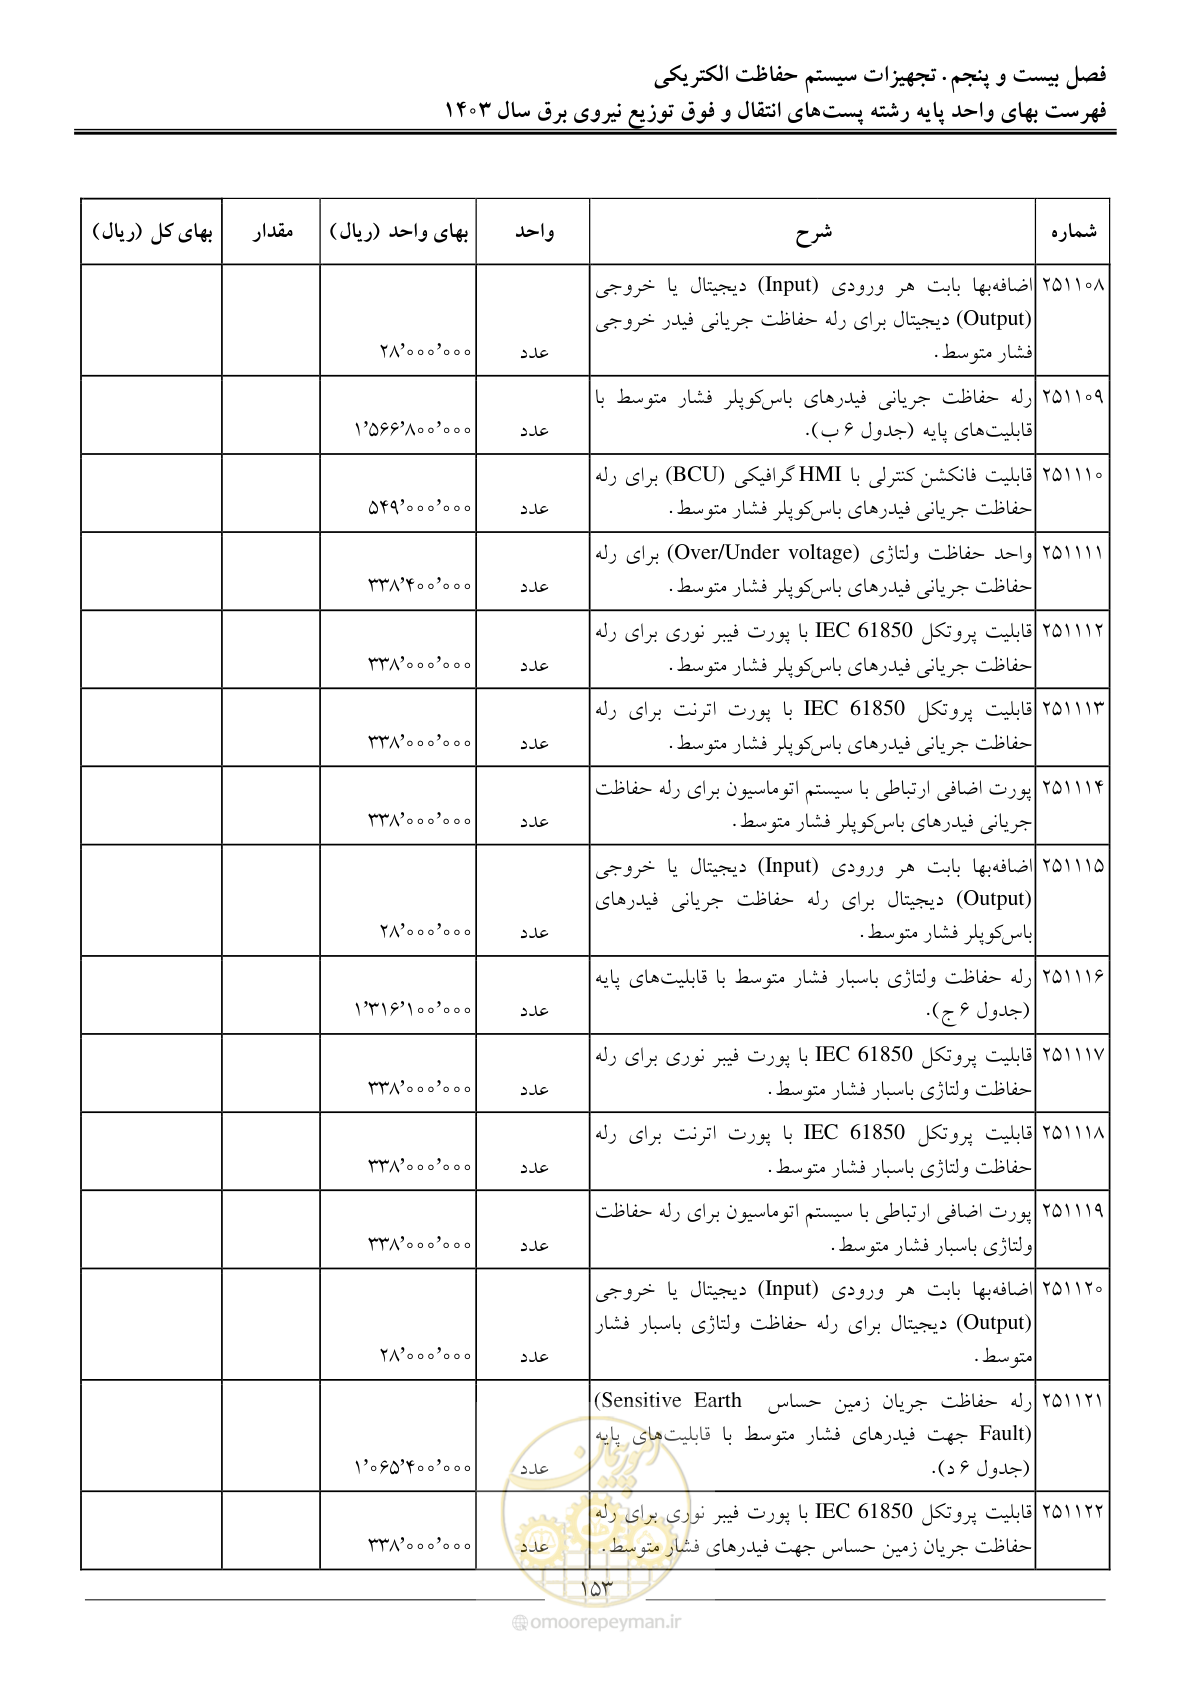 فصل بیست و پنجم. تجهیزات سیستم حفاظت الکتریکی
فهرست بهای واحد پایه رشته پست‌های انتقال و فوق توزیع نیروی برق سال ۱۴۰۳
شماره	شرح	واحد	بهای واحد (ریال)	مقدار	بهای کل (ریال)
۲۵۱۱۰۸ اضافه‌بها بابت هر ورودی (Input) دیجیتال یا خروجی
(Output) دیجیتال برای رله حفاظت جریانی فیدر خروجی
فشار متوسط. عدد ۲۸٬۰۰۰٬۰۰۰
۲۵۱۱۰۹ رله حفاظت جریانی فیدرهای باس‌کوپلر فشار متوسط با
قابلیت‌های پایه (جدول ۶ ب). عدد ۱٬۵۶۶٬۸۰۰٬۰۰۰
۲۵۱۱۱۰ قابلیت فانکشن کنترلی با HMI گرافیکی (BCU) برای رله
حفاظت جریانی فیدرهای باس‌کوپلر فشار متوسط. عدد ۵۴۹٬۰۰۰٬۰۰۰
۲۵۱۱۱۱ واحد حفاظت ولتاژی (Over/Under voltage) برای رله
حفاظت جریانی فیدرهای باس‌کوپلر فشار متوسط. عدد ۳۳۸٬۴۰۰٬۰۰۰
۲۵۱۱۱۲ قابلیت پروتکل IEC 61850 با پورت فیبر نوری برای رله
حفاظت جریانی فیدرهای باس‌کوپلر فشار متوسط. عدد ۳۳۸٬۰۰۰٬۰۰۰
۲۵۱۱۱۳ قابلیت پروتکل IEC 61850 با پورت اترنت برای رله
حفاظت جریانی فیدرهای باس‌کوپلر فشار متوسط. عدد ۳۳۸٬۰۰۰٬۰۰۰
۲۵۱۱۱۴ پورت اضافی ارتباطی با سیستم اتوماسیون برای رله حفاظت
جریانی فیدرهای باس‌کوپلر فشار متوسط. عدد ۳۳۸٬۰۰۰٬۰۰۰
۲۵۱۱۱۵ اضافه‌بها بابت هر ورودی (Input) دیجیتال یا خروجی
(Output) دیجیتال برای رله حفاظت جریانی فیدرهای
باس‌کوپلر فشار متوسط. عدد ۲۸٬۰۰۰٬۰۰۰
۲۵۱۱۱۶ رله حفاظت ولتاژی باسبار فشار متوسط با قابلیت‌های پایه
(جدول ۶ ج). عدد ۱٬۳۱۶٬۱۰۰٬۰۰۰
۲۵۱۱۱۷ قابلیت پروتکل IEC 61850 با پورت فیبر نوری برای رله
حفاظت ولتاژی باسبار فشار متوسط. عدد ۳۳۸٬۰۰۰٬۰۰۰
۲۵۱۱۱۸ قابلیت پروتکل IEC 61850 با پورت اترنت برای رله
حفاظت ولتاژی باسبار فشار متوسط. عدد ۳۳۸٬۰۰۰٬۰۰۰
۲۵۱۱۱۹ پورت اضافی ارتباطی با سیستم اتوماسیون برای رله حفاظت
ولتاژی باسبار فشار متوسط. عدد ۳۳۸٬۰۰۰٬۰۰۰
۲۵۱۱۲۰ اضافه‌بها بابت هر ورودی (Input) دیجیتال یا خروجی
(Output) دیجیتال برای رله حفاظت ولتاژی باسبار فشار
متوسط. عدد ۲۸٬۰۰۰٬۰۰۰
۲۵۱۱۲۱ رله حفاظت جریان زمین حساس (Sensitive Earth
Fault) جهت فیدرهای فشار متوسط با قابلیت‌های پایه
(جدول ۶ د). عدد ۱٬۰۶۵٬۴۰۰٬۰۰۰
۲۵۱۱۲۲ قابلیت پروتکل IEC 61850 با پورت فیبر نوری برای رله
حفاظت جریان زمین حساس جهت فیدرهای فشار متوسط. عدد ۳۳۸٬۰۰۰٬۰۰۰
امورپیمان
۱۵۳
omoorepeyman.ir